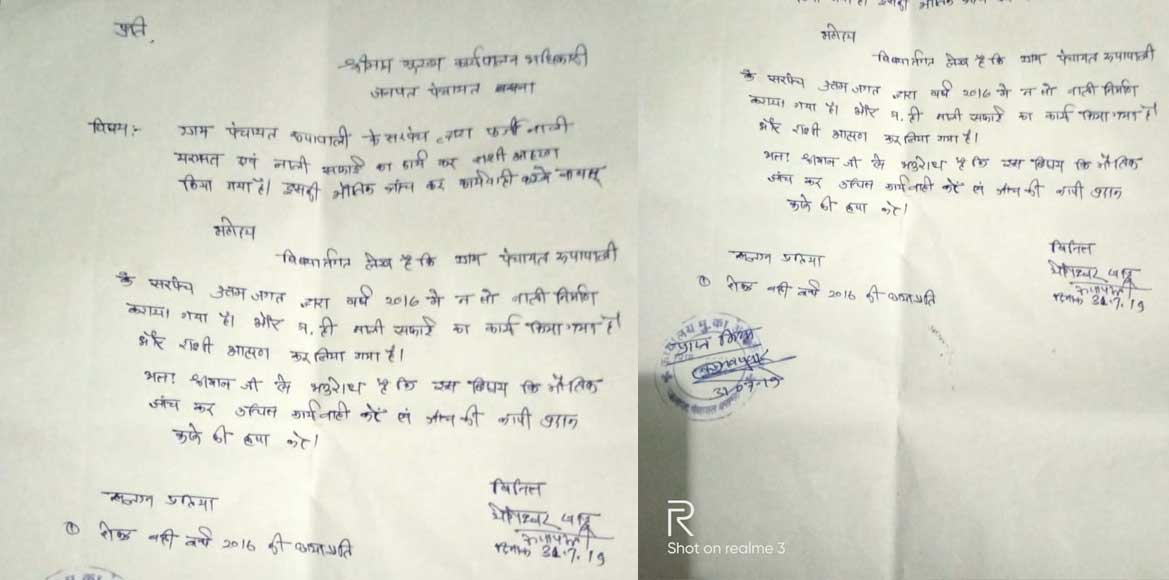 प्रति,
श्रीमान मुख्य कार्यपालन अधिकारी
जनपद पंचायत
विषय:- ग्राम पंचायत रूपापाली के सरपंच द्वारा फर्जी नाली
मरम्मत एवं नाली सफाई का कार्य कर राशी आहरण
किया गया है। इसकी भौतिक जांच कर कार्यवाही करने बाबत्
महोदय
विषयांर्तगत लेख है कि ग्राम पंचायत रूपापाली
के सरपंच उत्तम जगत द्वारा वर्ष 2016 मे न तो नाली निर्माण
कराया गया है। और न ही नाली सफाई का कार्य किया गया है
और राशी आहरण कर लिया गया है।
अतः श्रीमान जी से अनुरोध है कि इस विषय कि भौतिक
जांच कर उचित कार्यवाही करें एवं जांच की कापी प्रदान
करने की कृपा करें।
संलग्न प्रतिया
① रोकड़ बही वर्ष 2016 की छायाप्रति
विनित
दिनांक 31.7.19
महोदय
विषयांर्तगत लेख है कि ग्राम पंचायत रूपापाली
के सरपंच उत्तम जगत द्वारा वर्ष 2016 मे न तो नाली निर्माण
कराया गया है। और न ही नाली सफाई का कार्य किया गया है
और राशी आहरण कर लिया गया है।
अतः श्रीमान जी से अनुरोध है कि इस विषय कि भौतिक
जांच कर उचित कार्यवाही करें एवं जांच की कापी प्रदान
करने की कृपा करें।
संलग्न प्रतिया
① रोकड़ बही वर्ष 2016 की छायाप्रति
विनित
दिनांक 31.7.19
प्राप्त किया
31-07-19
R
Shot on realme 3